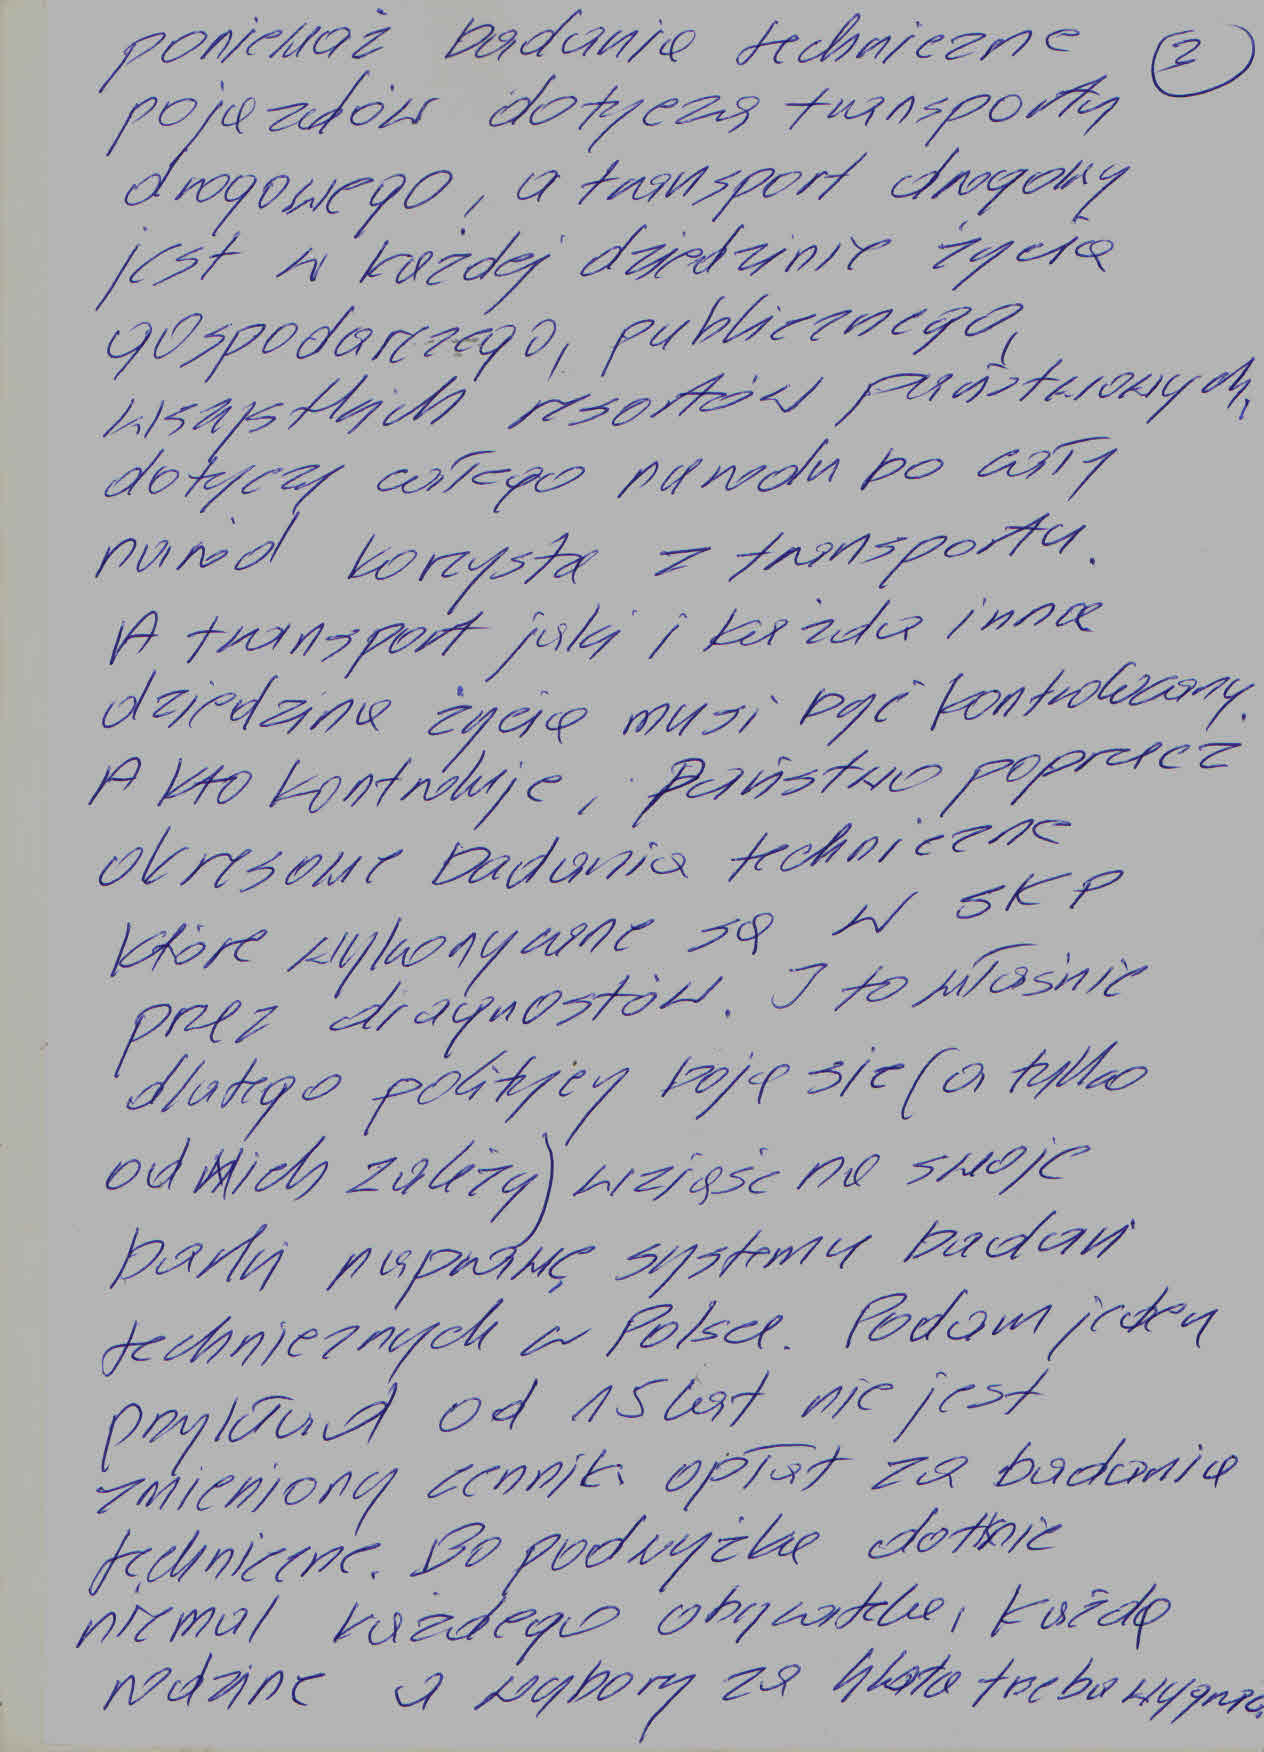 ponieważ badania techniczne
2
pojazdów dotyczą transportu
drogowego, a transport drogowy
jest w każdej dziedzinie życia
gospodarczego, publicznego,
wszystkich resortów państwowych,
dotyczy całego narodu bo cały
naród korzysta z transportu.
A transport jaki i każda inna
dziedzina życia musi być kontrolowany.
A kto kontroluje, Państwo poprzez
okresowe badania techniczne
które wykonywane są w SKP
przez diagnostów. I to właśnie
dlatego politycy boją sie (a tylko
od Nich zależy) wziąść na swoje
barki naprawę systemu badań
technicznych w Polsce. Podam jeden
przykład od 15 lat nie jest
zmieniony cennik opłat za badania
techniczne. Bo podwyżka dotknie
niemal każdego obywatela, każdą
rodzine a wybory za 4 lata trzeba wygrać.